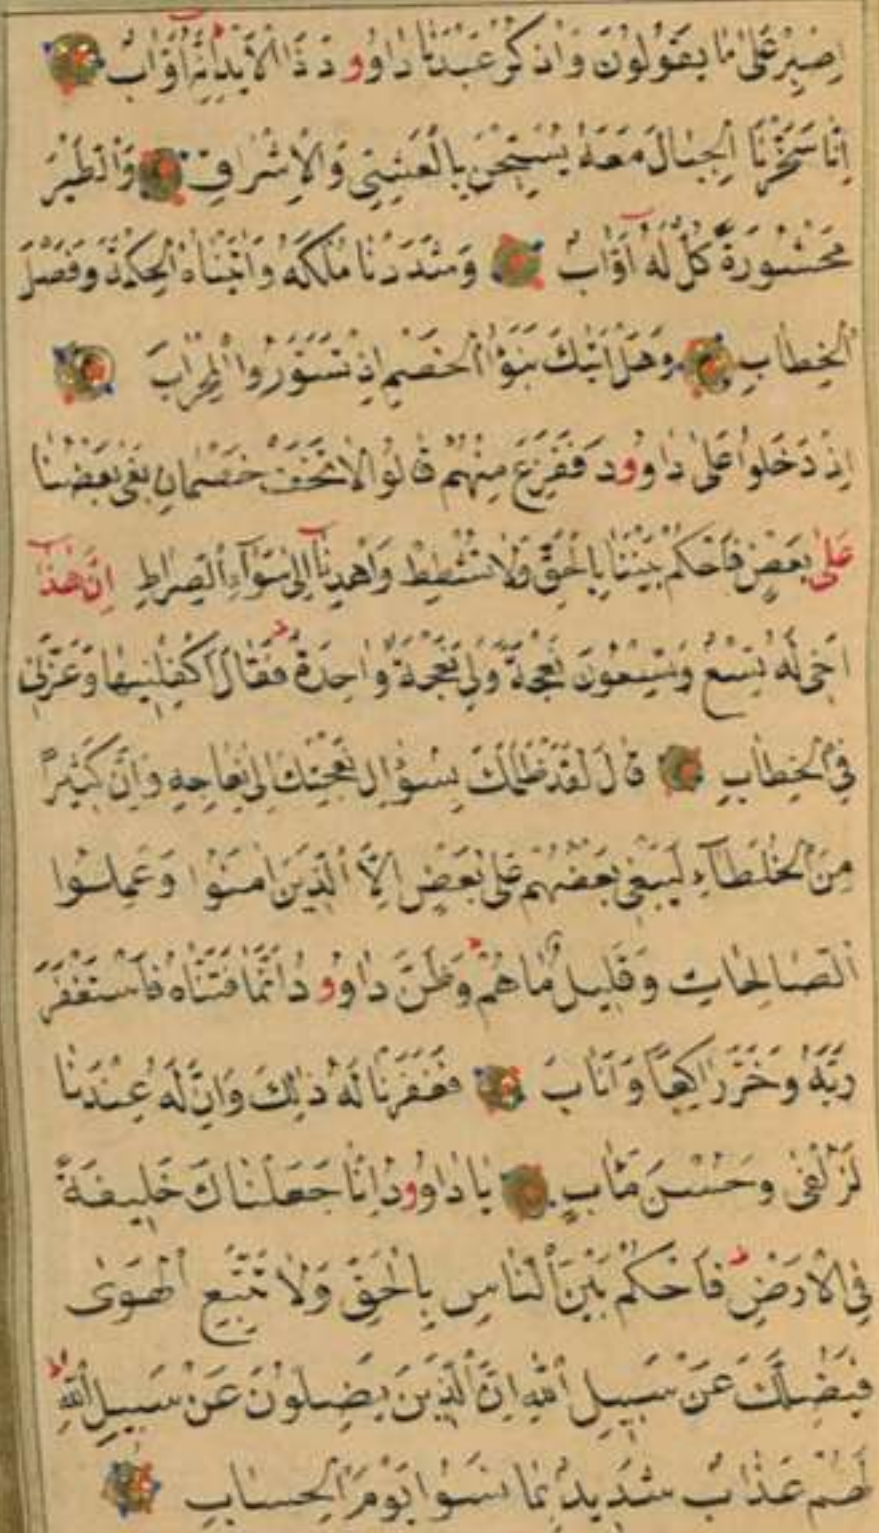 اِصْبِرْ عَلٰى مَا يَقُولُونَ وَاذْكُرْ عَبْدَنَا دَاوُودَ ذَا الْاَيْدِ اِنَّهُ اَوَّابٌ
اِنَّا سَخَّرْنَا الْجِبَالَ مَعَهُ يُسَبِّحْنَ بِالْعَشِيِّ وَالْاِشْرَاقِ وَالطَّيْرَ
مَحْشُورَةً كُلٌّ لَهُ اَوَّابٌ وَشَدَدْنَا مُلْكَهُ وَاٰتَيْنَاهُ الْحِكْمَةَ وَفَصْلَ
الْخِطَابِ وَهَلْ اَتٰيكَ نَبَؤُا الْخَصْمِ اِذْ تَسَوَّرُوا الْمِحْرَابَ
اِذْ دَخَلُوا عَلٰى دَاوُودَ فَفَزِعَ مِنْهُمْ قَالُوا لَا تَخَفْ خَصْمَانِ بَغٰى بَعْضُنَا
عَلٰى بَعْضٍ فَاحْكُمْ بَيْنَنَا بِالْحَقِّ وَلَا تُشْطِطْ وَاهْدِنَا اِلٰى سَوَاءِ الصِّرَاطِ اِنَّ هٰذَا
اَخِى لَهُ تِسْعٌ وَتِسْعُونَ نَعْجَةً وَلِىَ نَعْجَةٌ وَاحِدَةٌ فَقَالَ اَكْفِلْنِيهَا وَعَزَّنِى
فِى الْخِطَابِ قَالَ لَقَدْ ظَلَمَكَ بِسُؤَالِ نَعْجَتِكَ اِلٰى نِعَاجِهِ وَاِنَّ كَثِيرًا
مِنَ الْخُلَطَاءِ لَيَبْغِى بَعْضُهُمْ عَلٰى بَعْضٍ اِلَّا الَّذِينَ اٰمَنُوا وَعَمِلُوا
الصَّالِحَاتِ وَقَلِيلٌ مَا هُمْ وَظَنَّ دَاوُودُ اَنَّمَا فَتَنَّاهُ فَاسْتَغْفَرَ
رَبَّهُ وَخَرَّ رَاكِعًا وَاَنَابَ فَغَفَرْنَا لَهُ ذٰلِكَ وَاِنَّ لَهُ عِنْدَنَا
لَزُلْفٰى وَحُسْنَ مَاٰبٍ يَا دَاوُودُ اِنَّا جَعَلْنَاكَ خَلِيفَةً
فِى الْاَرْضِ فَاحْكُمْ بَيْنَ النَّاسِ بِالْحَقِّ وَلَا تَتَّبِعِ الْهَوٰى
فَيُضِلَّكَ عَنْ سَبِيلِ اللّٰهِ اِنَّ الَّذِينَ يَضِلُّونَ عَنْ سَبِيلِ اللّٰهِ
لَهُمْ عَذَابٌ شَدِيدٌ بِمَا نَسُوا يَوْمَ الْحِسَابِ